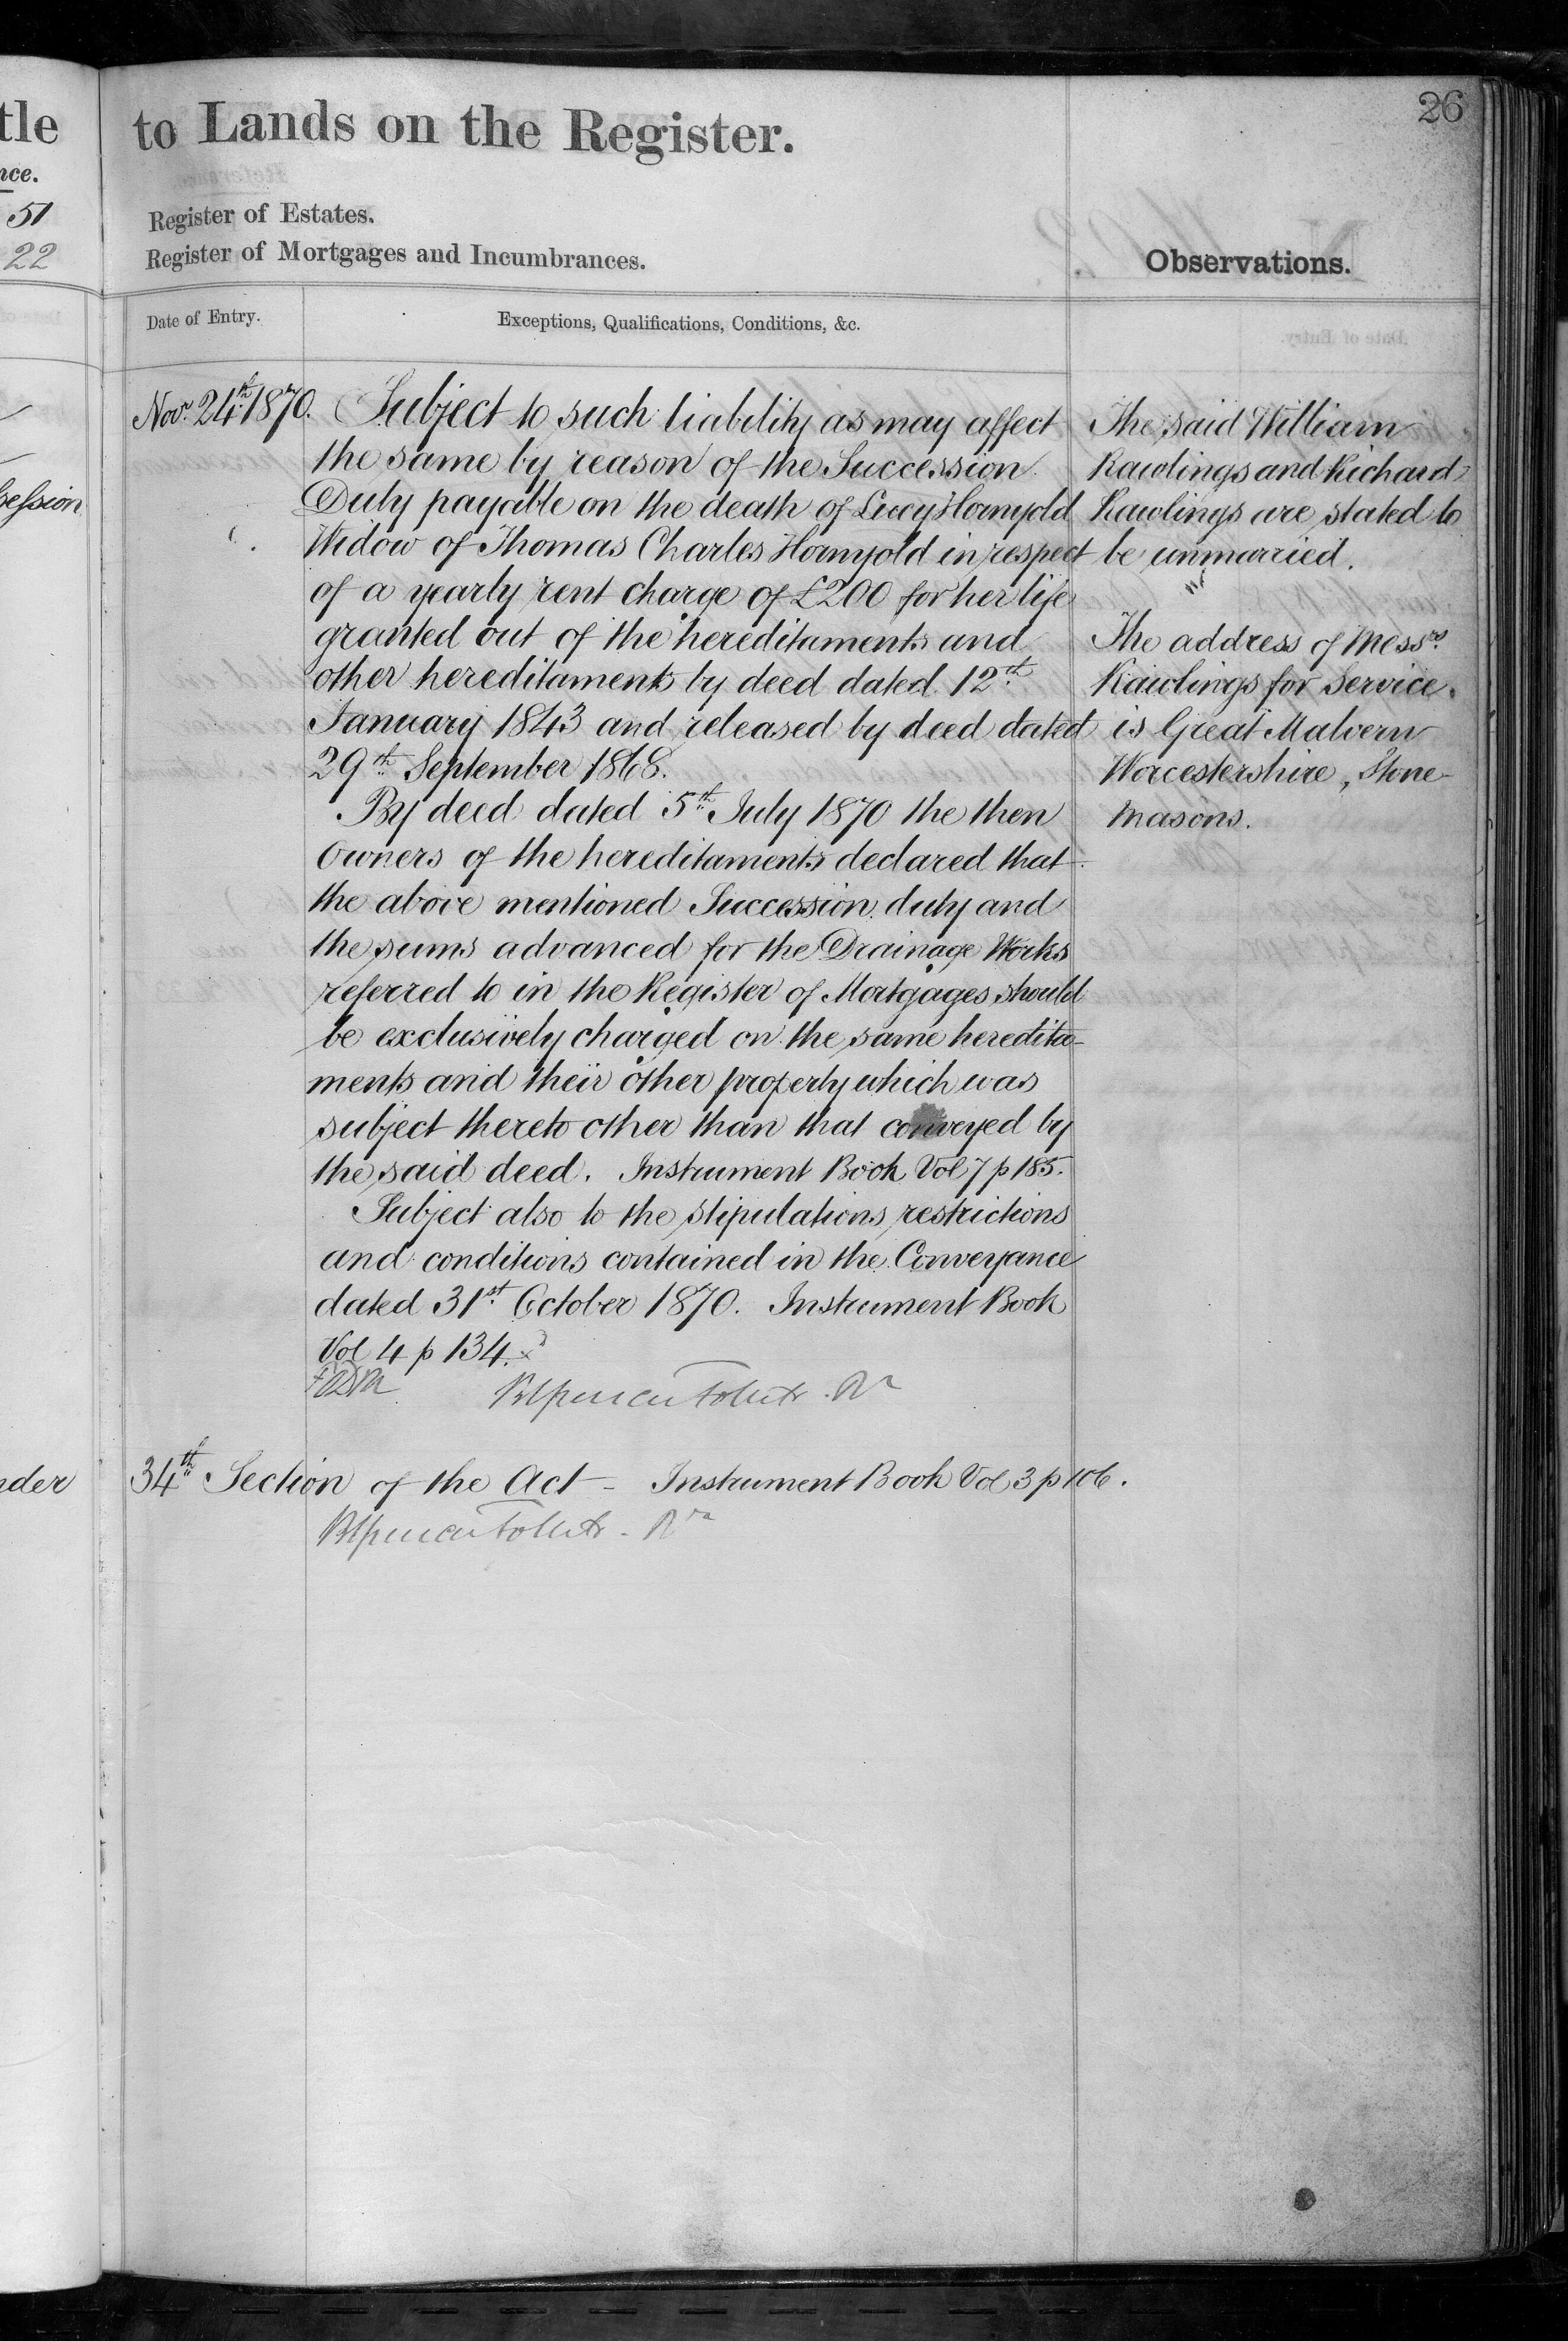 tle
nce.
51
22
session
nder
26
to Lands on the Register.
Register of Estates.
Register of Mortgages and Incumbrances.
Observations.
Date of Entry.
Exceptions, Qualifications, Conditions, &c.
Novr. 24th 1870.
Subject to such liability as may affect
the same by reason of the Succession
Duty payable on the death of Lucy Hornyold
Widow of Thomas Charles Hornyold in respect
of a yearly rent charge of £200 for her life
granted out of the hereditaments and
other hereditaments by deed dated 12th
January 1843 and released by deed dated
29th September 1868.
By deed dated 5th July 1870 the then
Owners of the hereditaments declared that
the above mentioned Succession duty and
the sums advanced for the Drainage Works
referred to in the Register of Mortgages should
be exclusively charged on the same heredita-
ments and their other property which was
subject thereto other than that conveyed by
the said deed. Instrument Book Vol 7 p 185.
Subject also to the stipulations restrictions
and conditions contained in the Conveyance
dated 31st October 1870. Instrument Book
Vol 4 p 134.
34th Section of the Act - Instrument Book Vol 3 p 106.
The said William
Rawlings and Richard
Rawlings are stated to
be unmarried.
The address of Messrs.
Rawlings for Service
is Great Malvern
Worcestershire, Stone-
Masons.